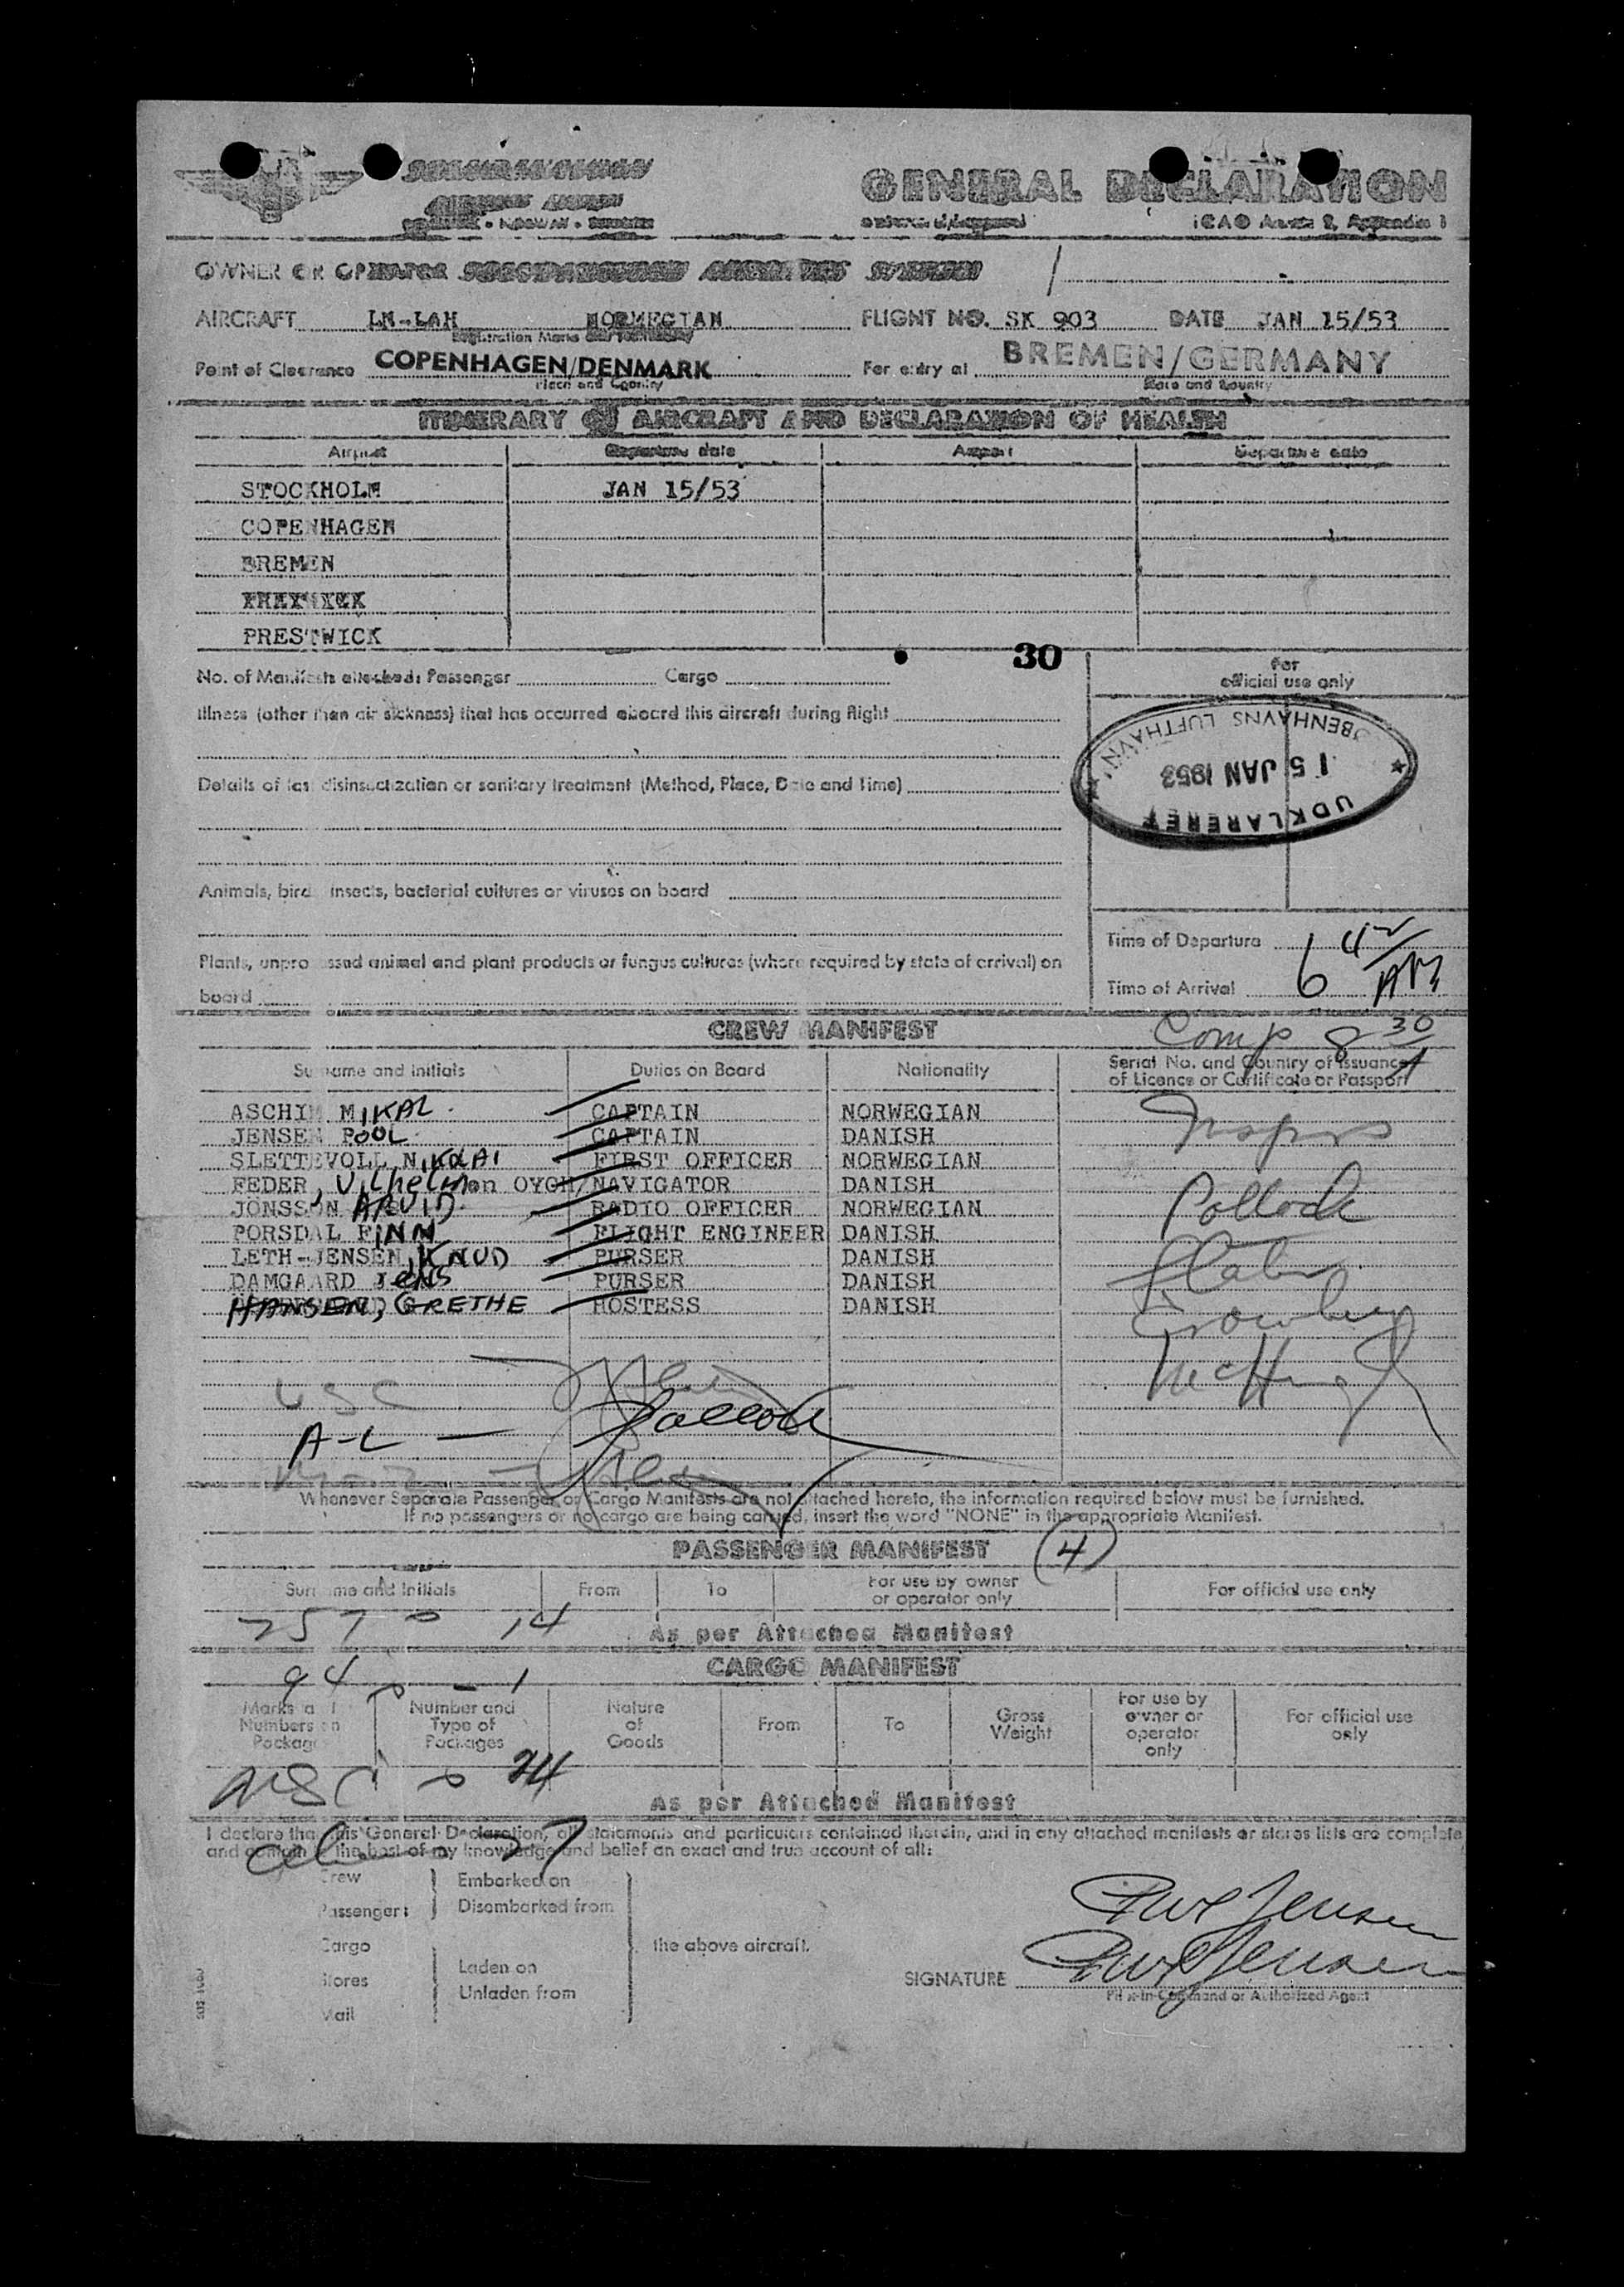 SCANDINAVIAN
AIRLINES SYSTEM
DENMARK • NORWAY • SWEDEN
GENERAL DECLARATION
Outward/Inward ICAO Annex 9, Appendix 1
OWNER OR OPERATOR SCANDINAVIAN AIRLINES SYSTEM
AIRCRAFT LN-LAH NORWEGIAN FLIGHT NO. SK 903 DATE JAN 15/53
Registration Marks and Nationality
Point of Clearance COPENHAGEN/DENMARK For entry at BREMEN/GERMANY
Place and Country Place and Country
ITINERARY OF AIRCRAFT AND DECLARATION OF HEALTH
Airport Departure date Airport Departure date
STOCKHOLM JAN 15/53
COPENHAGEN
BREMEN
PRESTWICK
30
No. of Manifests attached: Passenger Cargo
For
official use only
Illness (other than air sickness) that has occurred aboard this aircraft during flight
KØBENHAVNS LUFTHAVN
15 JAN 1953
UDKLARERET
Details of last disinsectization or sanitary treatment (Method, Place, Date and Time)
Animals, birds, insects, bacterial cultures or viruses on board
Plants, unprocessed animal and plant products or fungus cultures (where required by state of arrival) on
board
Time of Departure
Time of Arrival 6 AM
CREW MANIFEST
Comp 8 30
Surname and Initials Duties on Board Nationality Serial No. and Country of Issuance
of Licence or Certificate or Passport
ASCHIM MIKAL. CAPTAIN NORWEGIAN
JENSEN POOL. CAPTAIN DANISH
SLETTEVOLL NIKOLAI FIRST OFFICER NORWEGIAN
FEDER, Vilhelm NAVIGATOR DANISH
JONSSON ARVID. RADIO OFFICER NORWEGIAN Pollock
PORSDAL FINN FLIGHT ENGINEER DANISH
LETH-JENSEN, KNUD PURSER DANISH
DAMGAARD JENS PURSER DANISH
HANSEN, GRETHE HOSTESS DANISH
McHugh
USC
A-L — Pollock
Whenever Separate Passenger or Cargo Manifests are not attached hereto, the information required below must be furnished.
If no passengers or no cargo are being carried, insert the word "NONE" in the appropriate Manifest.
PASSENGER MANIFEST (4)
Surname and Initials From To For use by owner
or operator only For official use only
257 14
As per Attached Manifest
CARGO MANIFEST
94 - 1
Marks and
Numbers on
Package Number and
Type of
Packages Nature
of
Goods From To Gross
Weight For use by
owner or
operator
only For official use
only
24
As per Attached Manifest
I declare that this General Declaration, all statements and particulars contained therein, and in any attached manifests or stores lists are complete
and contain to the best of my knowledge and belief an exact and true account of all:
37
Crew Embarked on
Passengers Disembarked from
Cargo the above aircraft.
Stores Laden on
Mail Unladen from
Jensen
SIGNATURE Jensen
Pilot-in-Command or Authorized Agent